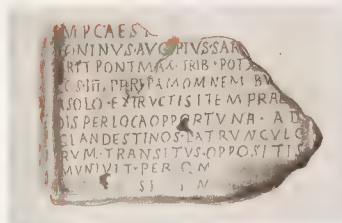 MP CAES
ONINVS·AVG·PIVS·SAR
PONT MAX·TRIB·POT
OMNEM
A SOLO·EXTRVCTIS ITEM PRAE
DIS PER LOCA OPPORTVNA·AD
CLANDESTINOS·LATRVNCVLO
RVM·TRANSITVS·OPPOSITIS
MVNIVIT·PER